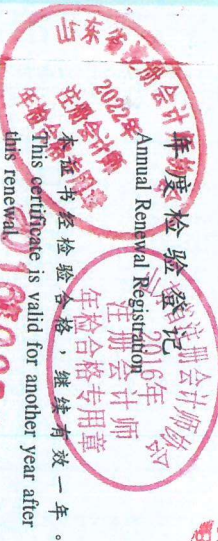 年度检验登记
Annual Renewal Registration
本证书经检验合格，继续有效一年。
This certificate is valid for another year after
this renewal.
山东省注册会计师协会
2022年
注册会计师
年检合格专用章
注册会计师协会
2016年
注册会计师
年检合格专用章